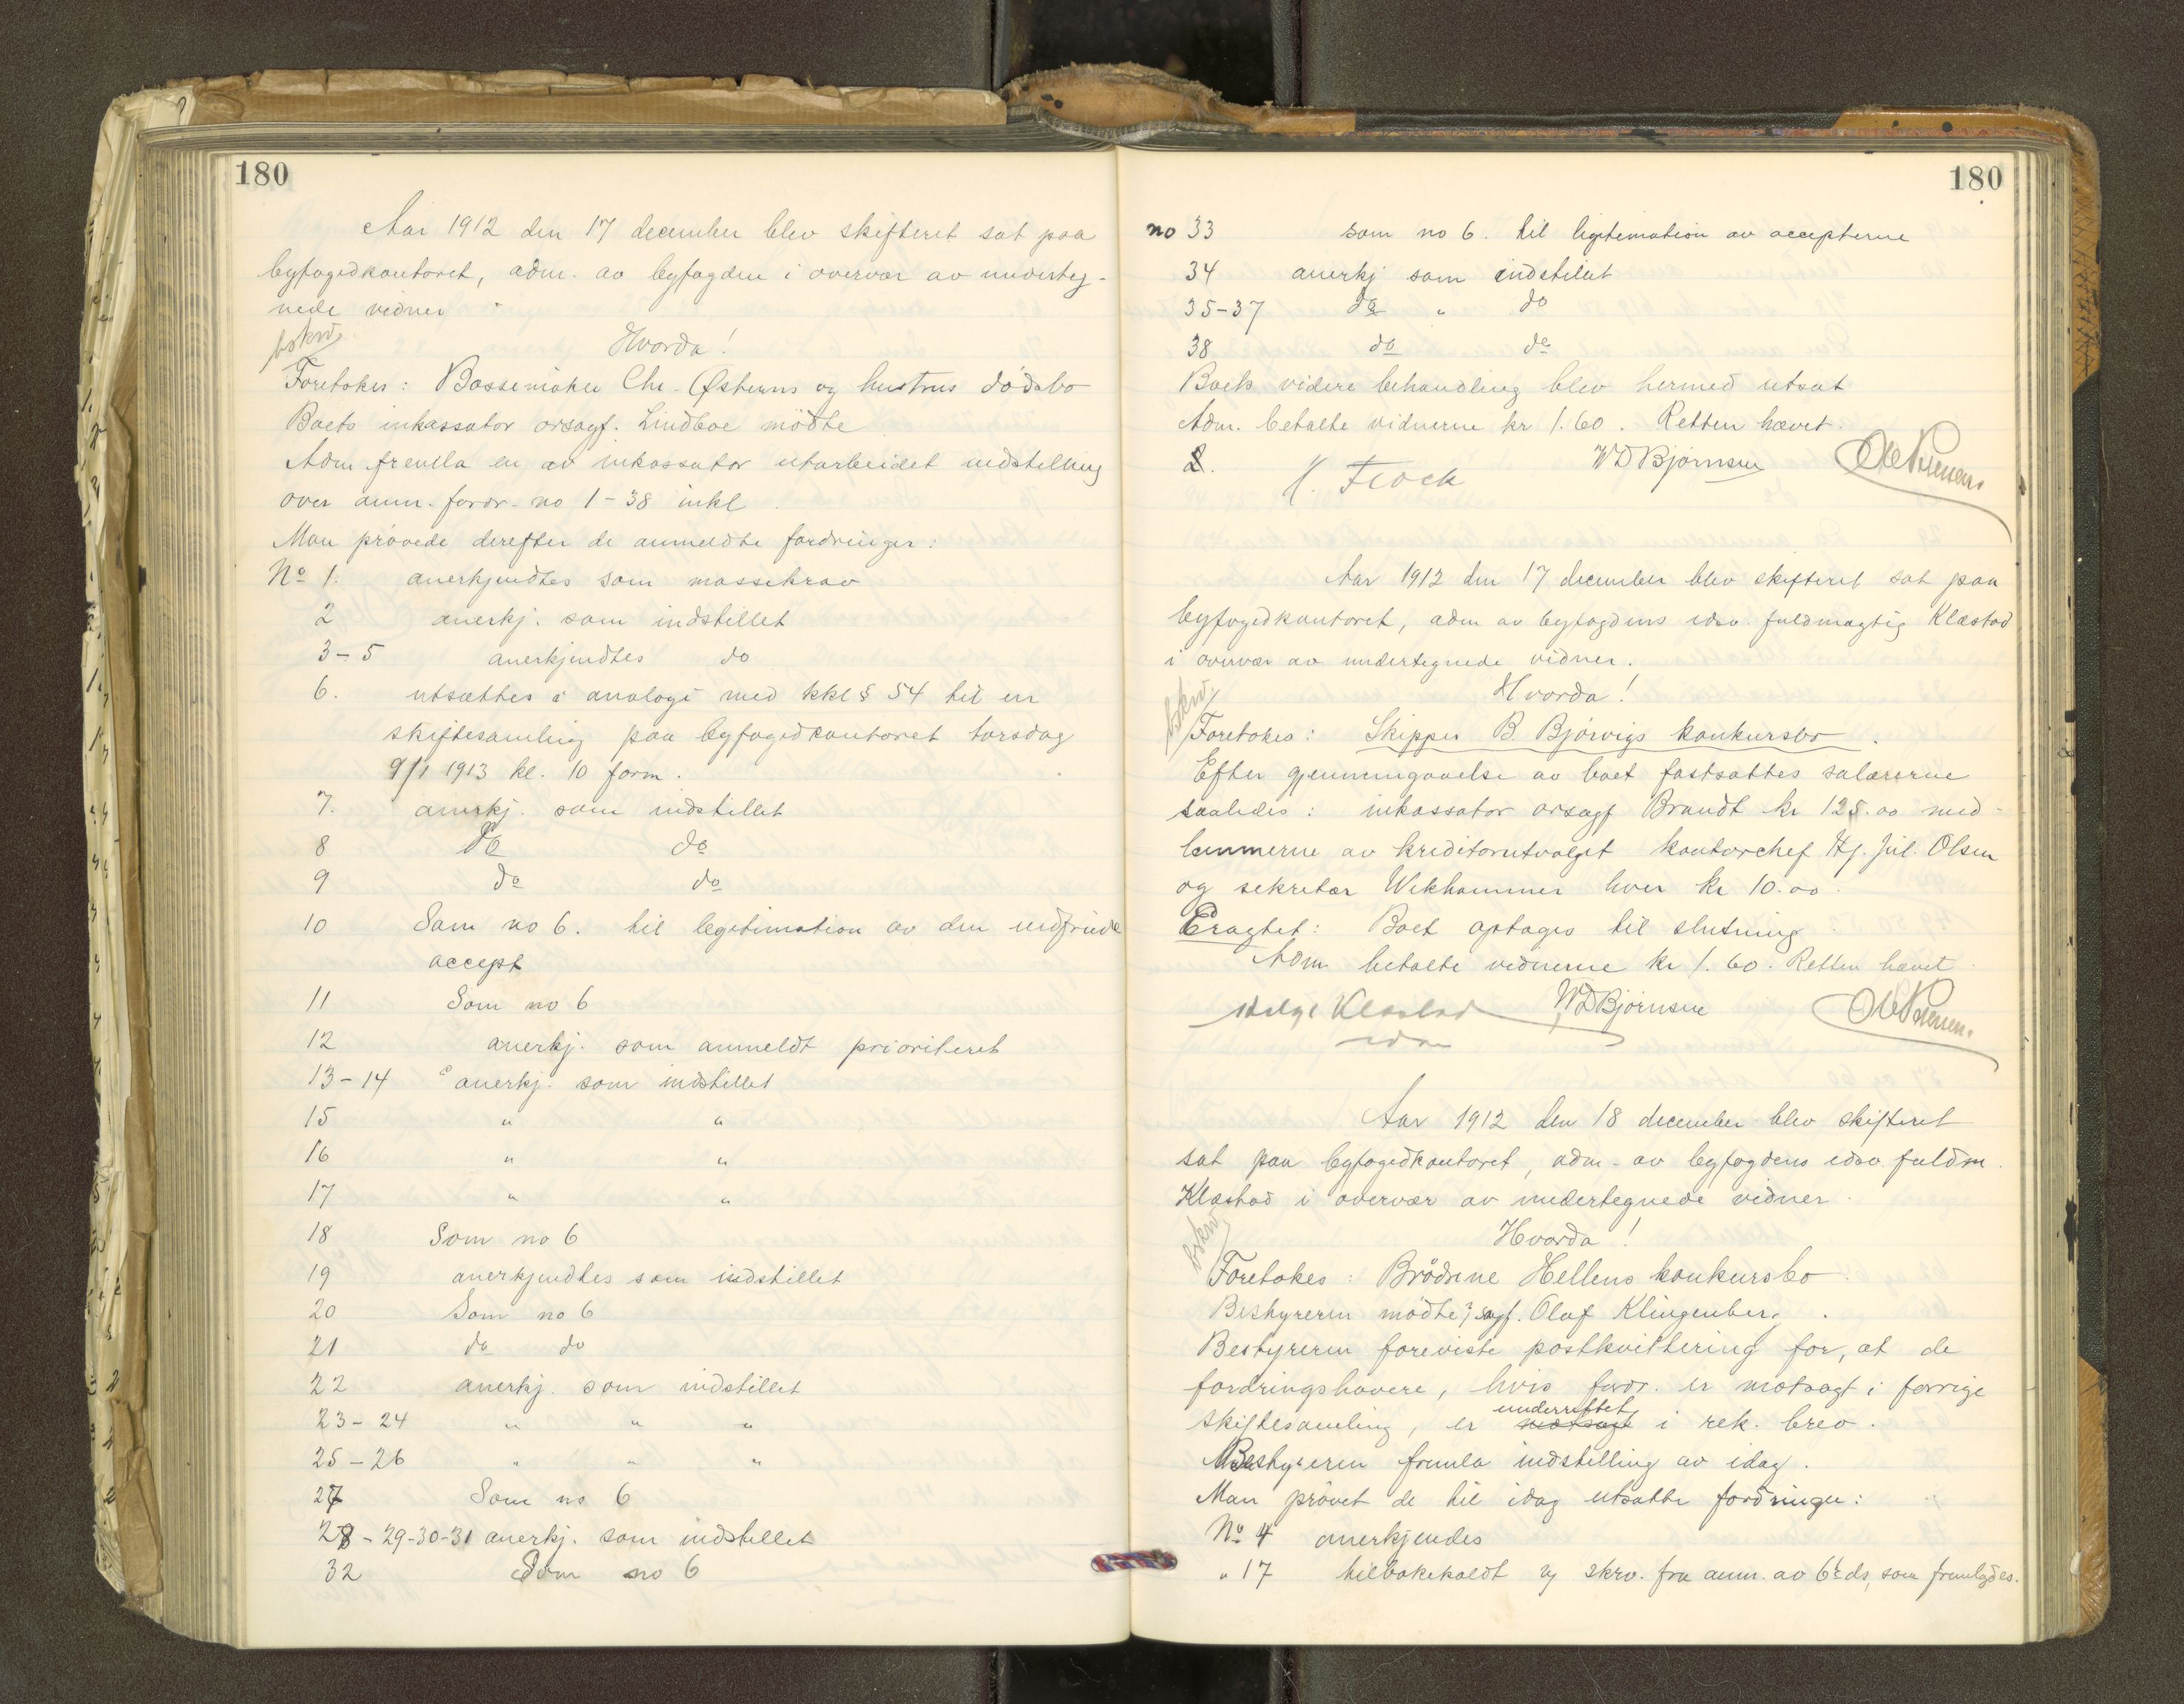 180
Aar 1912 den 17 december blev skifteret sat paa
byfogedkontoret, adm. av byfogden i overvær av underteg-
nede vidner
bskrv.
Hvorda!
Foretokes: Bøssemaker Chr. Østerns og hustrus dødsbo
Boets inkassator orsagf. Lindboe mødte
Adm fremla en av inkassator utarbeidet indstelling
over anm. fordr. no 1-38 inkl
Man prøvede derefter de anmeldte fordringer:
No 1. anerkjendtes som massekrav
2 anerkj. som indstillet
3-5 anerkjendtes do
6. utsættes i analogi med kkl § 54 til en
skiftesamling paa byfogedkontoret torsdag
9/1 1913 kl. 10 form.
7. anerkj. som indstillet
8 do do
9 do do
10 Som no 6. til legitimation av den indfriede
accept
11 Som no 6
12 anerkj. som anmeldt prioriteret
13-14 anerkj. som indstillet
15 " "
16 " "
17 " "
18 Som no 6
19 anerkjendtes som indstillet
20 Som no 6
21 do do
22 anerkj. som indstillet
23-24 " " "
25-26 " " "
27 Som no 6
28-29-30-31 anerkj. som indstillet
32 Som no 6
180
no 33 som no 6. til ligitimation av accepterne
34 anerkj som indstillet
35-37 do " do
38 do do
Boets videre behandling blev hermed utsat
Adm. betalte vidnerne kr 1.60. Retten hævet.
H. Flock WD Bjørnsen
Aar 1912 den 17 december blev skifteret sat paa
byfogedkontoret, adm av byfogdens edsv. fuldmægtig Klæstad
i overvær av undertegnede vidner.
bskrv.
Hvorda!
Foretokes: Skipper B. Bjørvigs konkursbo.
Efter gjennemgaaelse av boet fastsattes salærerne
saaledes: inkassator orsagf Brandt kr 125.00 med-
lemmerne av kreditorutvalget kontorchef Hj. Jul. Olsen
og sekretær Wekhammer hver kr 10.00.
Eragtet: Boet optages til slutning
Adm betalte vidnerne kr 1.60. Retten hævet
Helge Klæstad WD Bjørnsen
edsv
Aar 1912 den 18 december blev skifteret
sat paa byfogedkontoret, adm. av byfogdens edsv fuldm.
Klæstad i overvær av undertegnede vidner.
bskrv.
Hvorda!
Foretokes: Brødrene Hellens konkursbo.
Bestyreren mødte, sagf. Olaf Klingenberg.
Bestyreren foreviste postkvittering for, at de
fordringshavere, hvis fordr. er motsagt i forrige
underrettet
skiftesamling, er motsagt i rek. brev.
Bestyreren fremla indstilling av idag.
Man prøvet de til idag utsatte fordringer:
No 4 anerkjendes
" 17 tilbakekaldt v/ skrv. fra anm. av 6te ds, som fremlagdes.